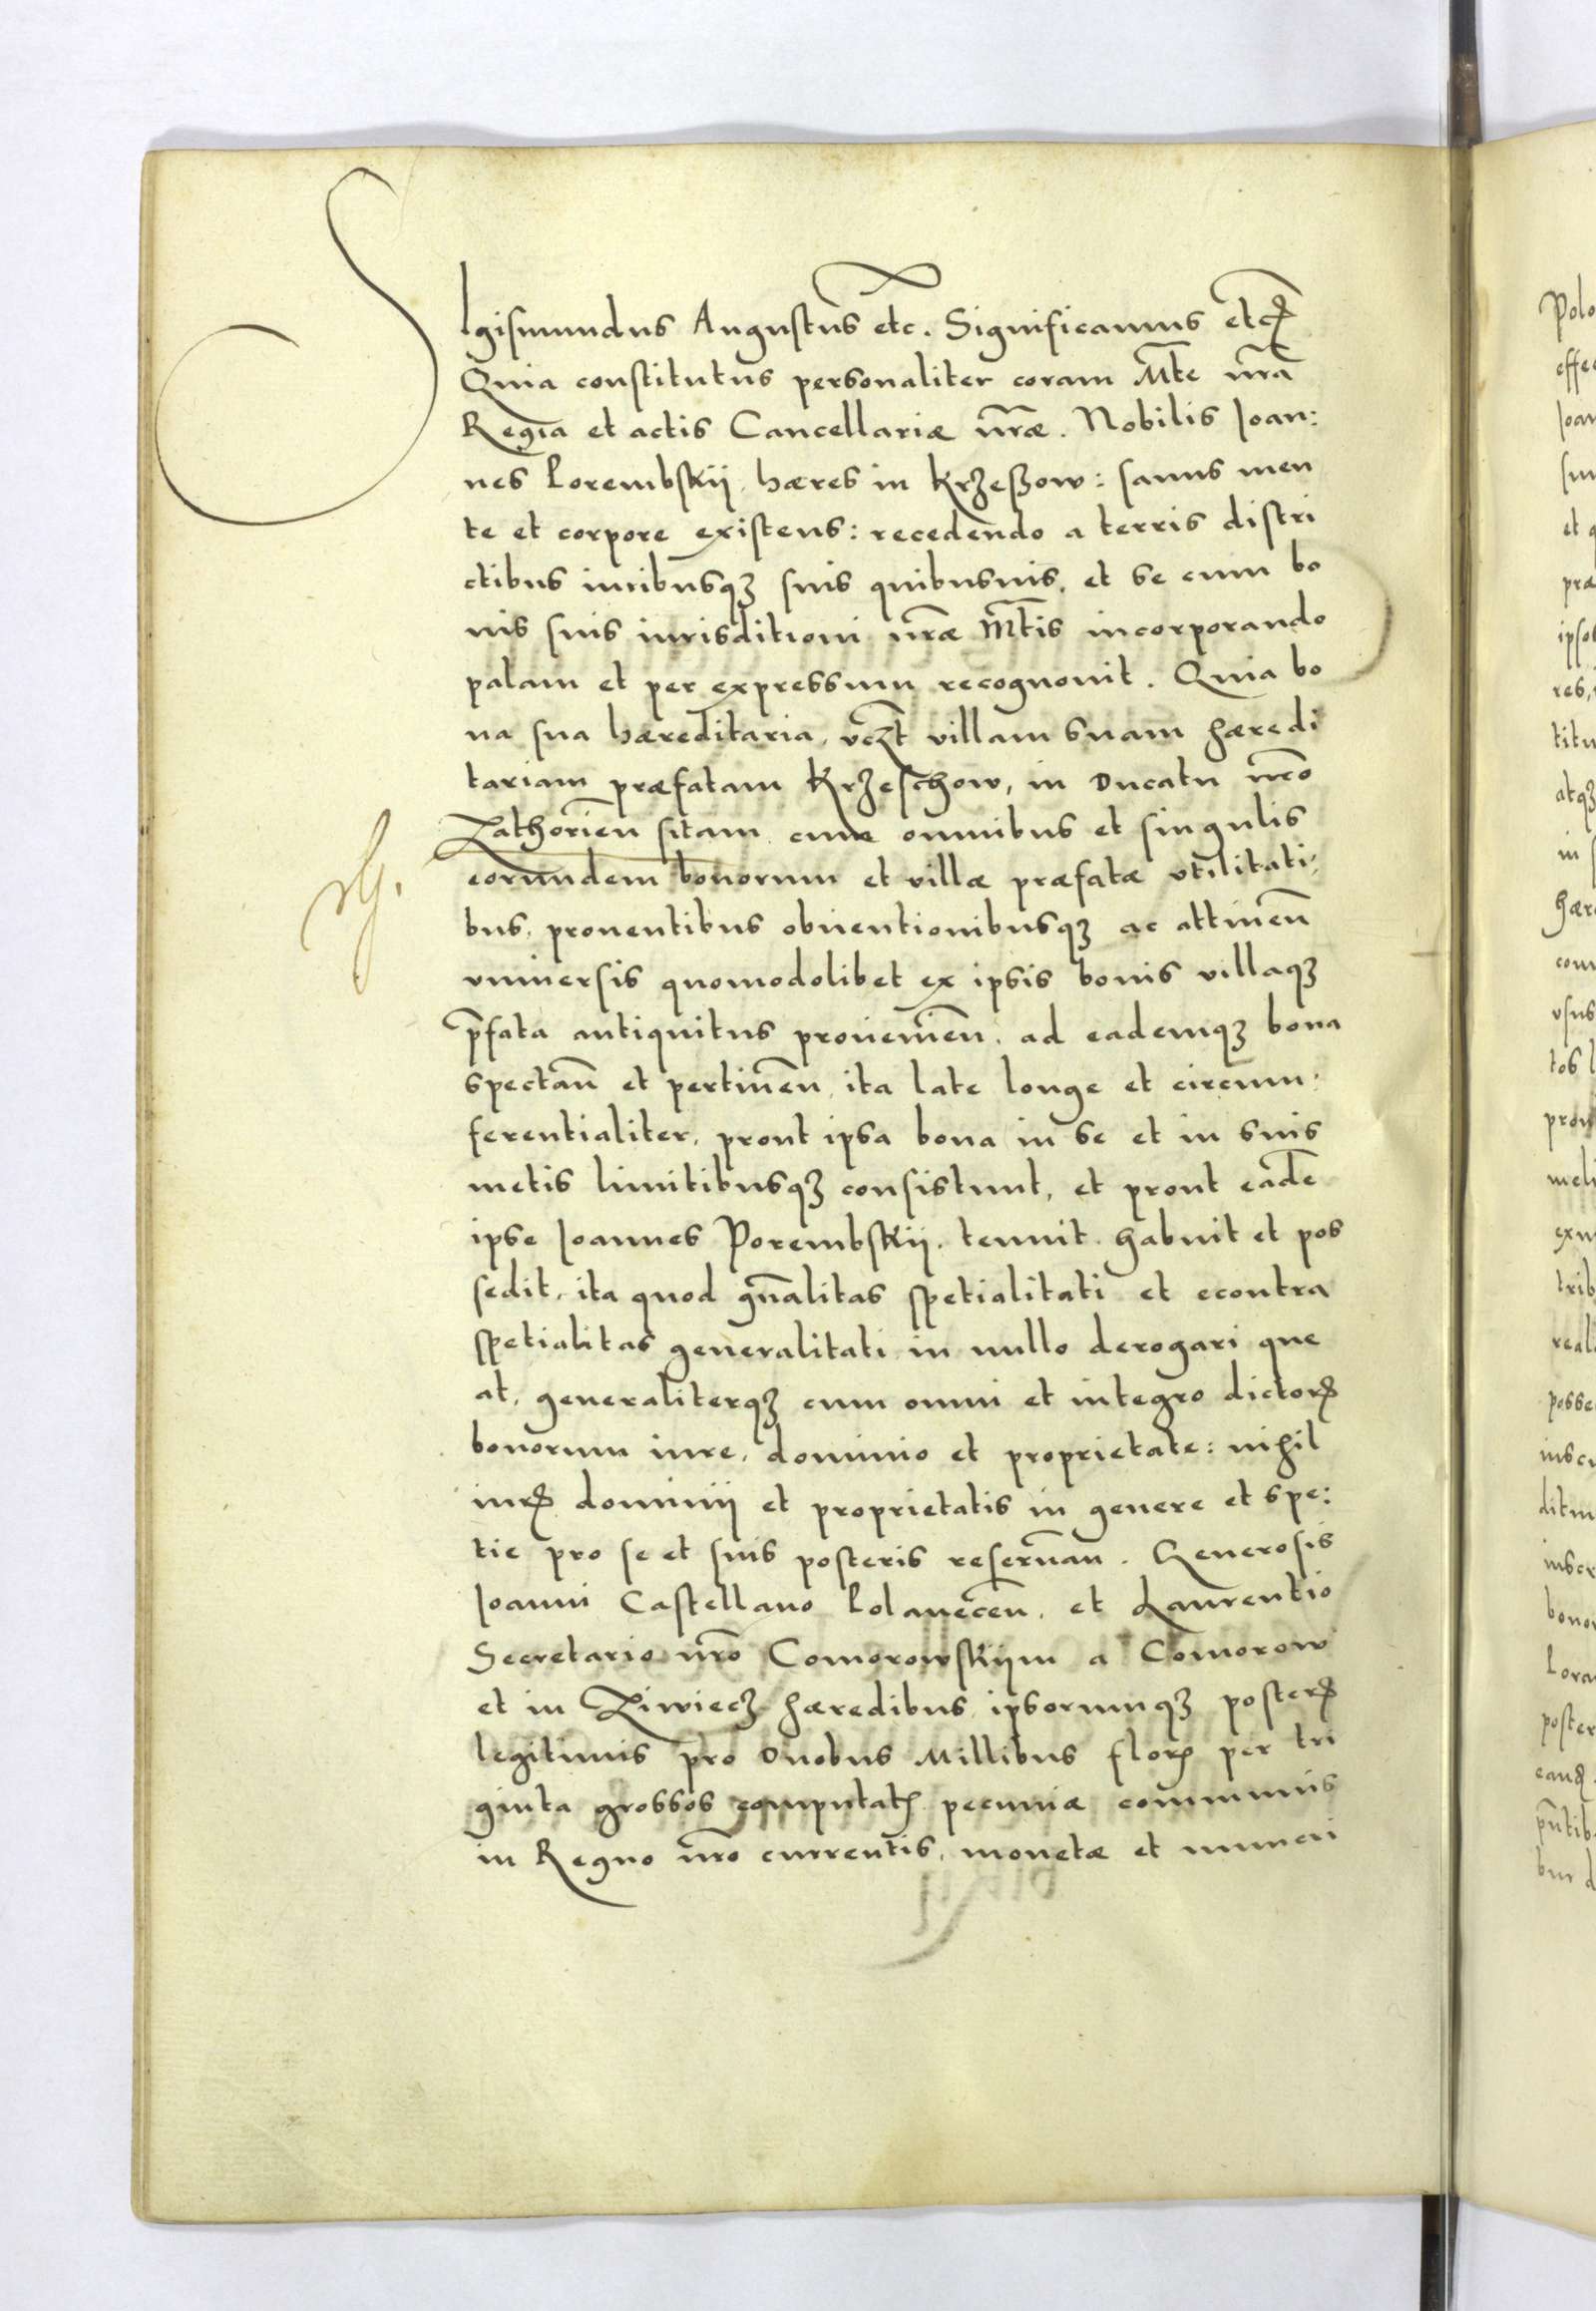 SIgismundus Augustus etc. Significamus etcꝝ
Quia constitutus personaliter coram Mt̄e nr̄a
Regia et actis Cancellariæ nr̄æ. Nobilis Ioan:
nes Porembskii, hæres in Krzeszow: sanus men
te et corpore existens: recedendo a terris distri
ctibus iuribusqꝫ suis quibusuis, et se cum bo
nis suis iurisditioni nr̄æ Mt̄is incorporando
palam et per expressum recognouit. Quia bo
na sua hæreditaria, vcꝫt villam suam hæredi
tariam præfatam Krzeschow, in Ducatu nr̄o
Zathorien̄ sitam cum omnibus et singulis
eorundem bonorum et villæ præfatæ vtilitati,
bus, prouentibus obuentionibusqꝫ ac attinen̄
vniuersis quomodolibet ex ipsis bonis villaqꝫ
p̄fata antiquitus prouenien̄. ad eademqꝫ bona
spectan̄ et pertinen̄, ita late longe et circum:
ferentialiter, prout ipsa bona in se et in suis
metis limitibusqꝫ consistunt, et prout eadē
ipse Ioannes Porembskii. tenuit habuit et pos
sedit, ita quod gn̄alitas spetialitati et econtra
spetialitas generalitati in nullo derogari que
at, generaliterqꝫ cum omni et integro dictorꝝ
bonorum iure, dominio et proprietate: nihil
iurꝭ dominii et proprietatis in genere et spe:
tie pro se et suis posteris reseruan̄. Generosis
Ioanni Castellano Polanecen̄. et Laurentio
Secretario nr̄o Comorowskiim a Comorow
et in Ziwiecz hæredibus ipsorumqꝫ posterꝭ
legitimis pro Duobus Millibus florꝭ per tri
ginta grossos computatꝭ pecuniæ communis
in Regno nr̄o currentis, monetæ et numeri
Polo
effec
Ioan
et q
præ
ipso
res,
titu
atqꝫ
in
hær
com
vsus
tos l
prou
meli
exu
trib
real
posse
inscr
ditm
inscr
bono
poster